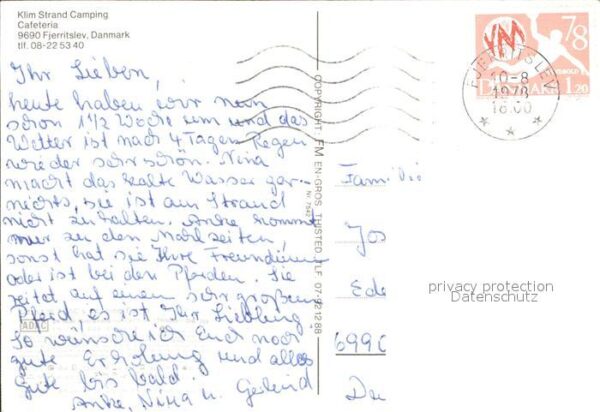 Klim Strand Camping
Cafeteria
9690 Fjerritslev, Danmark
tlf. 08-22 53 40
Ihr Lieben,
heute haben wir nun
schon 1 1/2 Woche um und das
Wetter ist nach 4 Tagen Regen
wieder sehr schön. Nina
macht das kalte Wasser gar
nichts, sie ist am Strand
nicht zu halten. Anke kommt
nur zu den Mahlzeiten,
sonst hat sie Ihre Freundinnen
oder ist bei den Pferden. Sie
reitet auf einem sehr großen
Pferd, es ist Ihr Liebling.
So wünsche ich Euch noch
gute Erholung und alles
Gute bis bald.
Anke, Nina u. Gerlind
ADAC
COPYRIGHT: FM EN-GROS, THISTED TLF 07-92 12 88
VM
78
HÅNDBOLD
DANMARK 1.20
FJERRITSLEV
10-8
1978
18.00
Familie
Jos
Ede
699
privacy protection
Datenschutz